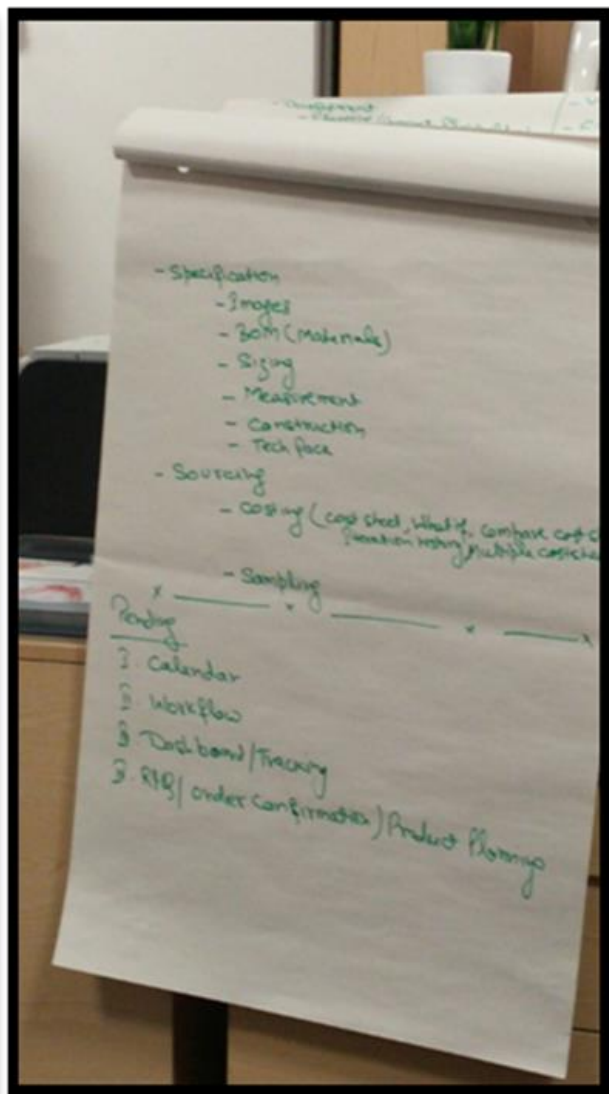 - Development
- Specification
- Images
- BOM (Materials)
- Sizing
- Measurement
- Construction
- Tech Pack
- Sourcing
- Costing ( cost sheet, What if, compare cost
Multiple cost
- Sampling
x ——— x ——— x ——— x
Pending
Calendar
Workflow
Dashboard/Tracking
Order Confirmation) Product Planning